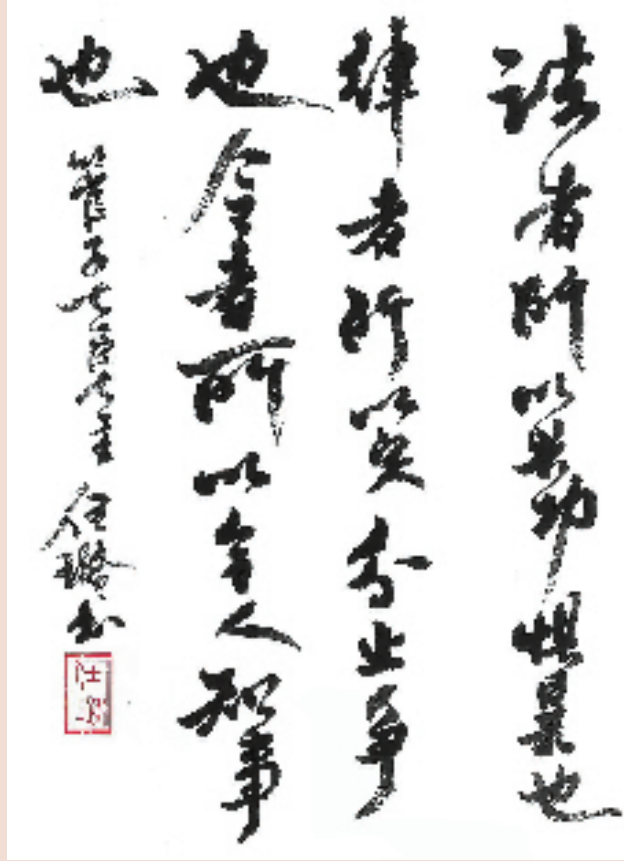 法者所以兴功惧暴也
律者所以定分止争
也令者所以令人知事
也 管子七臣七主 任璐书